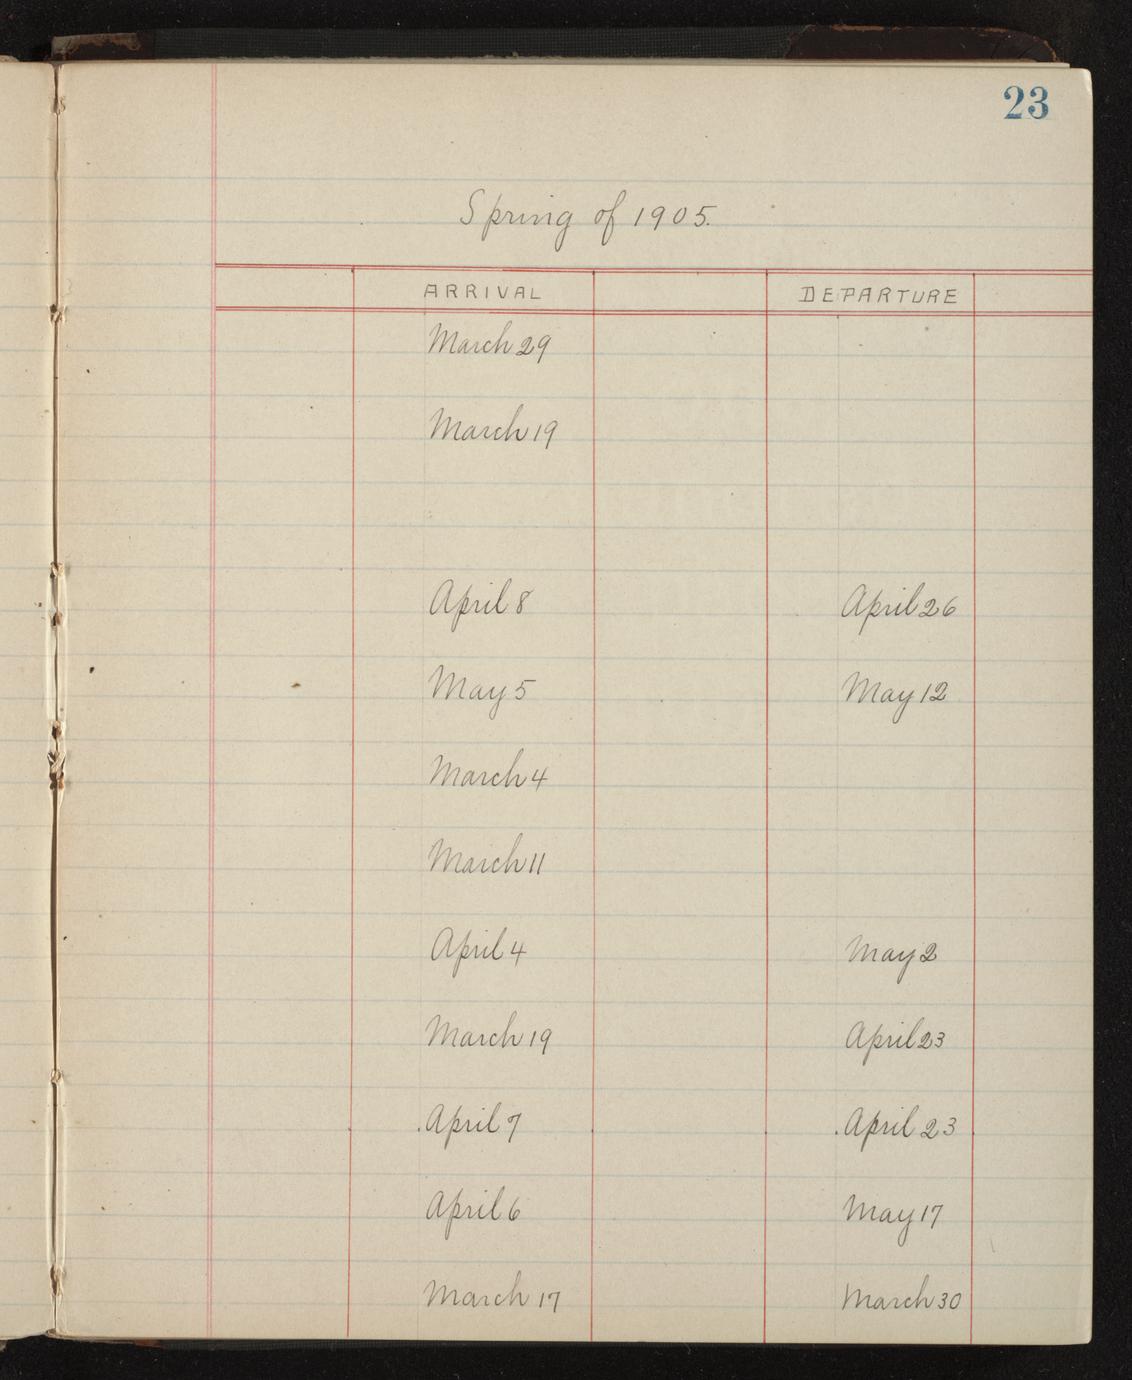 23
Spring of 1905.
ARRIVAL DEPARTURE
March 29
March 19
April 8 April 26
May 5 May 12
March 4
March 11
April 4 May 2
March 19 April 23
April 7 April 23
April 6 May 17
March 17 March 30